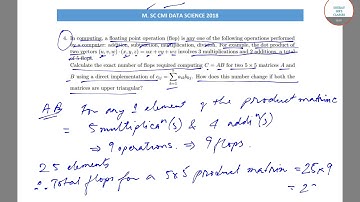 M. SC CMI DATA SCIENCE 2018
6. In computing, a floating point operation (flop) is any one of the following operations performed
by a computer: addition, subtraction, multiplication, division. For example, the dot product of
two vectors (u, v, w) · (x, y, z) := ux + vy + wz involves 3 multiplications and 2 additions, a total
of 5 flops.
Calculate the exact number of flops required computing C = AB for two 5 × 5 matrices A and
B using a direct implementation of c_ij = Σ a_ik b_kj. How does this number change if both the
matrices are upper triangular?
AB For any 1 element of the product matrix
= 5 multiplicaⁿ(s) & 4 addⁿ(s)
⇒ 9 operations. ⇒ 9 flops.
25 elements
∴ Total flops for a 5x5 product matrix = 25x9
= 2